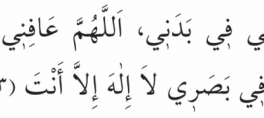 ي فِي بَدَنِي، اَللَّهُمَّ عَافِنِي
فِي بَصَرِي لاَ إِلٰهَ إِلاَّ أَنْتَ (٣